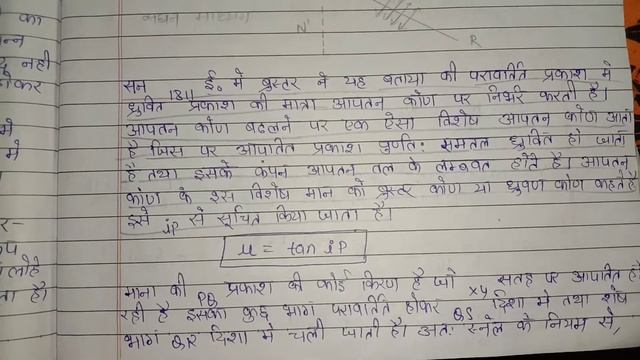 का
न्न
नही
सघन माध्यम
N'
R
सन 1811 ई. में ब्रुस्टर ने यह बताया की परावर्तित प्रकाश मे
ध्रुवित प्रकाश की मात्रा आपतन कोण पर निर्भर करती है।
आपतन कोण बदलने पर एक ऐसा विशेष आपतन कोण आता
है जिस पर आपतित प्रकाश पुर्णतः समतल ध्रुवित हो जाता
है तथा इसके कंपन आपतन तल के लम्बवत होते है। आपतन
कोण के इस विशेष मान को ब्रुस्टर कोण या ध्रुवण कोण कहते है
इसे ip से सूचित किया जाता है।
u = tan ip
माना की PQ प्रकाश की कोई किरण है जो xy सतह पर आपतित हो
रही है इसका कुछ भाग परावर्तित होकर QS दिशा मे तथा शेष
भाग QR दिशा मे चली जाती है। अतः स्नेल के नियम से,
मे
मे
र-
लोहे
ता है।